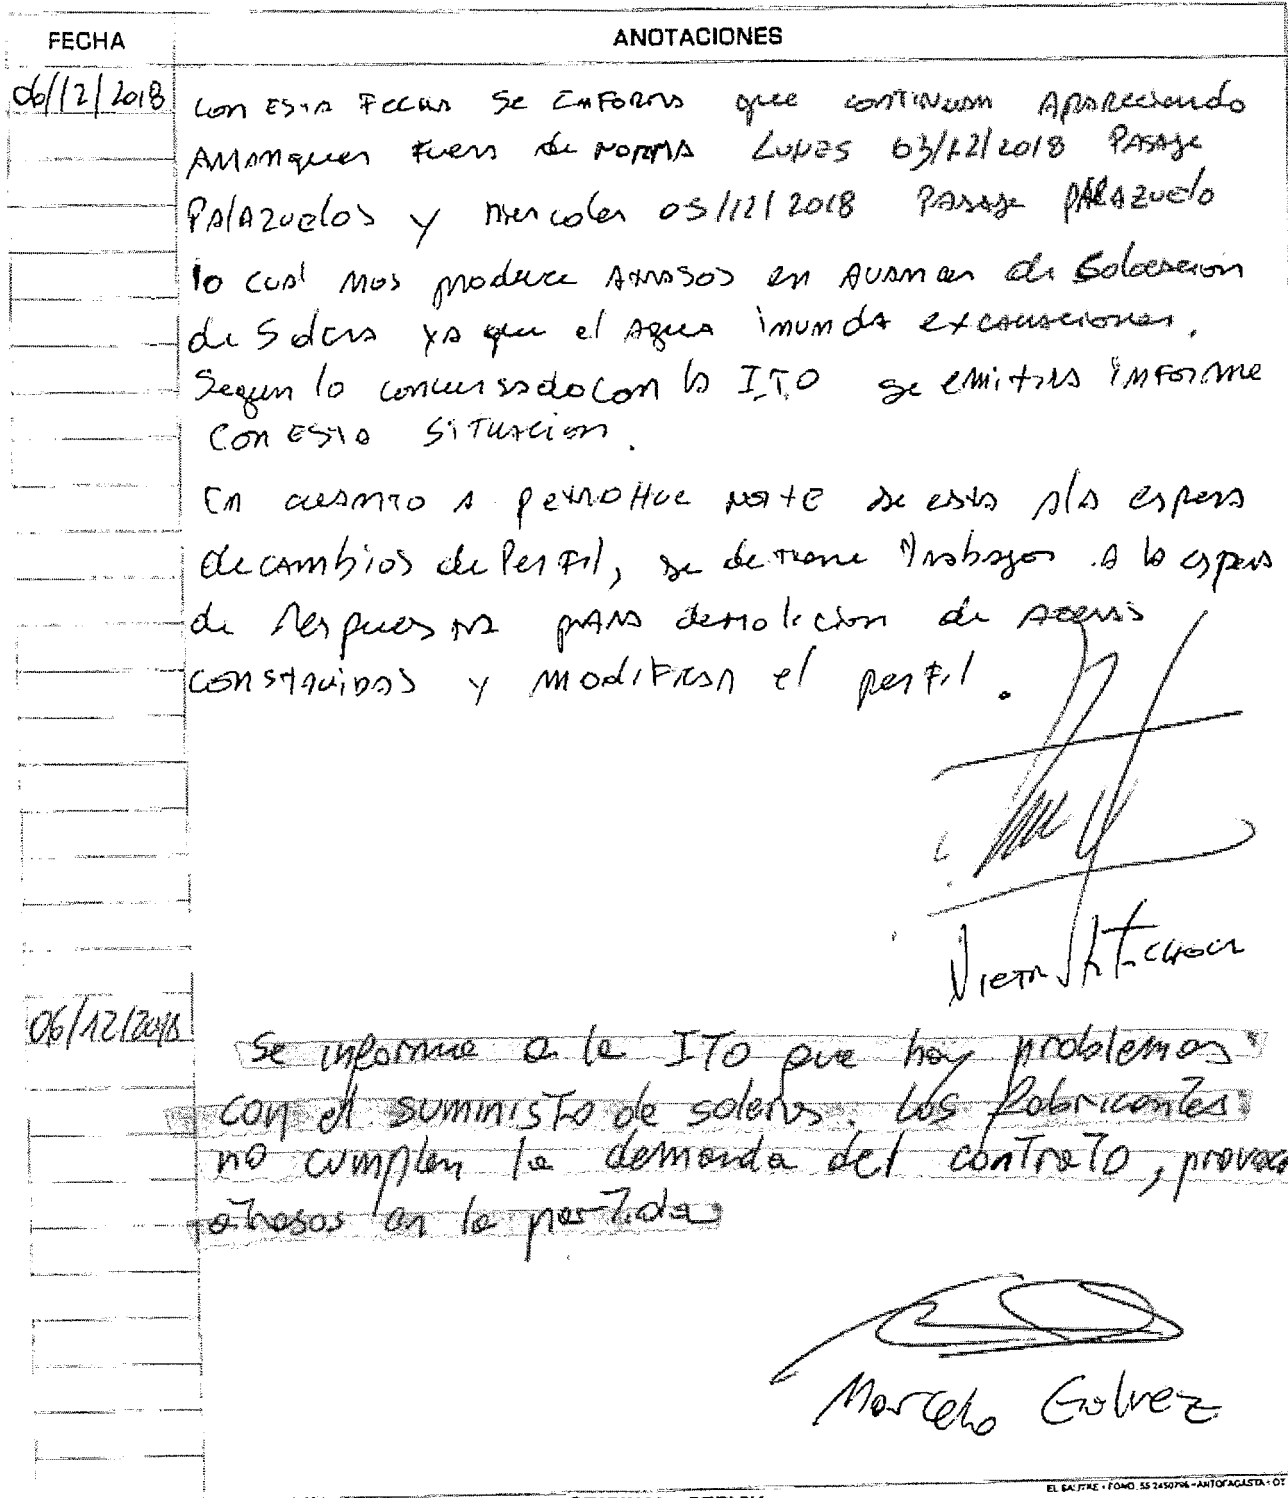 FECHA
ANOTACIONES
06/12/2018
Con Esta Fecha Se Informa que continuan Apareciendo
Arranques Fuera de Norma Lunes 03/12/2018 Pasaje
Palazuelos y miercoles 05/12/2018 Pasaje Palazuelo
lo cual nos produce Atrasos en Avances de Colocacion
de Solera ya que el Agua inunda excavaciones.
Segun lo conversado con la ITO se emitira informe
Con Esta Situacion.
En cuanto a Petrohue Norte se esta a la espera
de cambios de Perfil, se detiene trabajos a la espera
de Respuesta para demolicion de aceras
construidas y modifican el perfil.
06/12/2018
Se informa a la ITO que hay problemas
con el suministo de soleras. Los fabricantes
no cumplen la demanda del contrato, provoca
atrasos en la partida
Marcelo Galvez
EL SALITRE - FONO: 55 2450796 - ANTOFAGASTA - OT